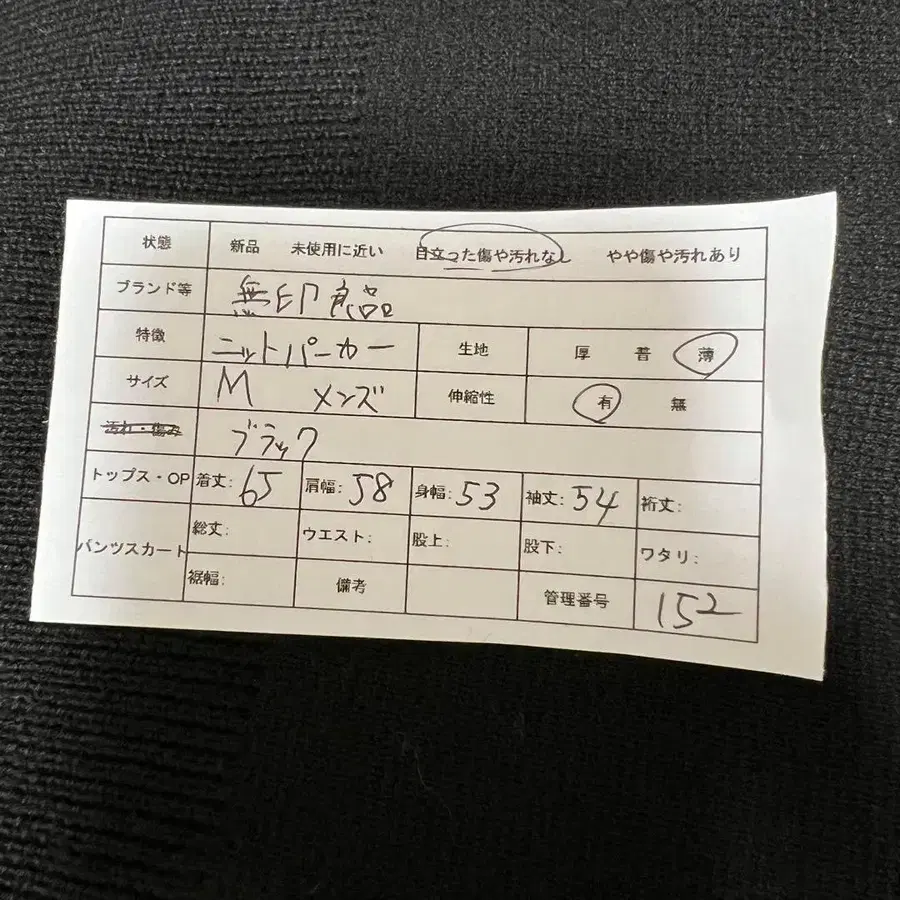 状態 新品 未使用に近い 目立った傷や汚れなし やや傷や汚れあり
ブランド等 無印良品
特徴 ニットパーカー 生地 厚 普 薄
サイズ M メンズ 伸縮性 有 無
汚れ・傷み ブラック
トップス・OP 着丈: 65 肩幅: 58 身幅: 53 袖丈: 54 裄丈:
パンツスカート 総丈: ウエスト: 股上: 股下: ワタリ:
裾幅: 備考 管理番号 152